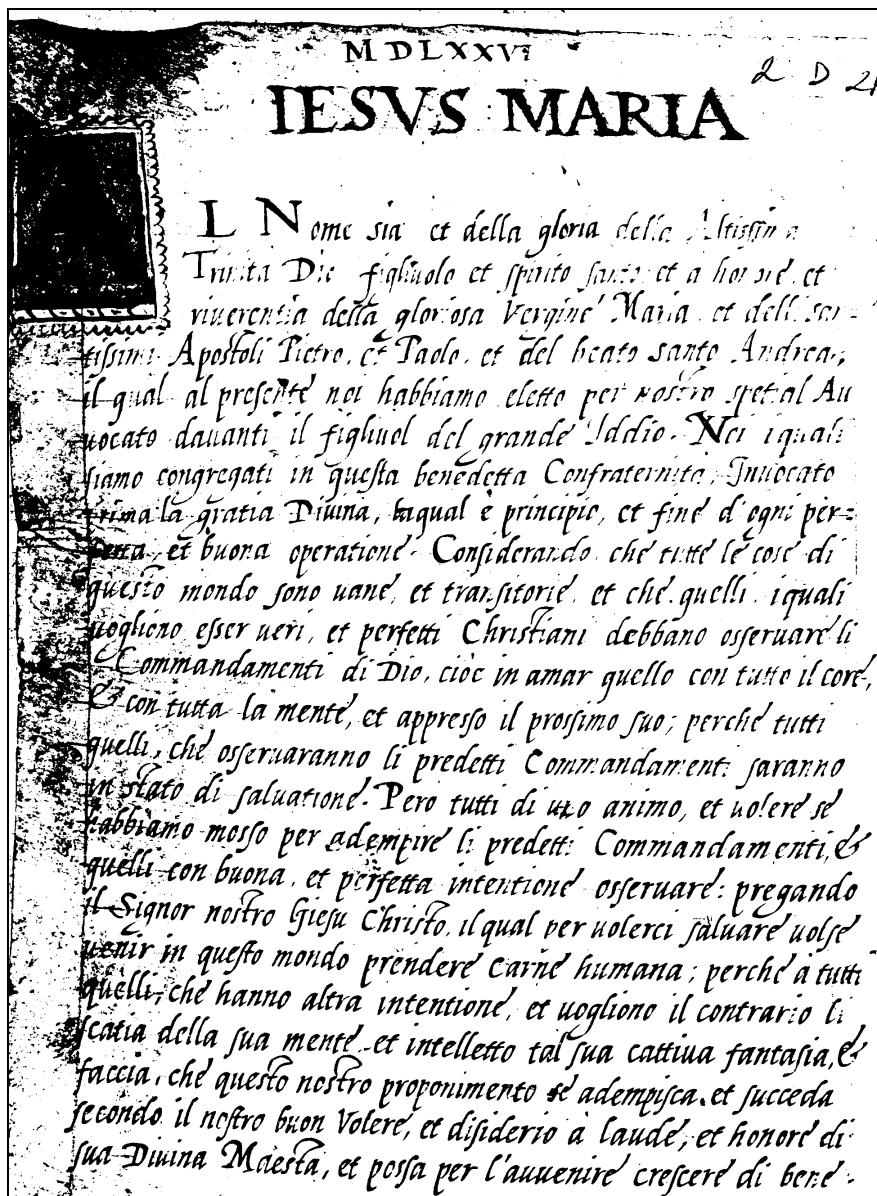 MDLXXVI
2 D 2
IESVS MARIA
L Nome sia et della gloria della Altissima
Trinita Dio figliuolo et spirito santo et a honore et
riuerentia della gloriosa Vergine Maria et delli san=
tissimi Apostoli Pietro, et Paolo, et del beato santo Andrea,
il qual al presente noi habbiamo eletto per nostro spetial Au
uocato dauanti il figliuol del grande Iddio. Noi iquali
siamo congregati in questa benedetta Confraternita, Inuocato
prima la gratia Diuina, laqual è principio, et fine d'ogni per=
fetta, et buona operatione. Considerando che tutte le cose di
questo mondo sono uane, et transitorie, et che quelli iquali
uogliono esser ueri, et perfetti Christiani debbano osseruare li
Commandamenti di Dio, cioè in amar quello con tutto il core,
& con tutta la mente, et appresso il prossimo suo; perche tutti
quelli, che osseruaranno li predetti Commandamenti saranno
in stato di saluatione. Pero tutti di uno animo, et uolere se
habbiamo mosso per adempire li predetti Commandamenti, &
quelli con buona, et perfetta intentione osseruare: pregando
il Signor nostro Giesu Christo, il qual per uolerci saluare uolse
uenir in questo mondo prendere carne humana; perche à tutti
quelli, che hanno altra intentione, et uogliono il contrario li
scatia della sua mente et intelletto tal sua cattiua fantasia, &
faccia, che questo nostro proponimento se adempisca, et succeda
secondo il nostro buon Volere, et disiderio à laude, et honore di
sua Diuina Maesta, et possa per l'auuenire crescere di bene